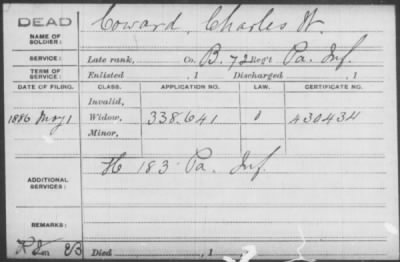 DEAD
NAME OF SOLDIER: Coward, Charles W.
SERVICE: Late rank, Co. B. 72 Reg't Pa. Inf.
TERM OF SERVICE: Enlisted , 1 Discharged , 1
DATE OF FILING. CLASS. APPLICATION NO. LAW. CERTIFICATE NO.
Invalid,
1886 May 1 Widow, 338.641 430434
Minor,
ADDITIONAL SERVICES: H 183 Pa. Inf.
REMARKS:
Died , 1